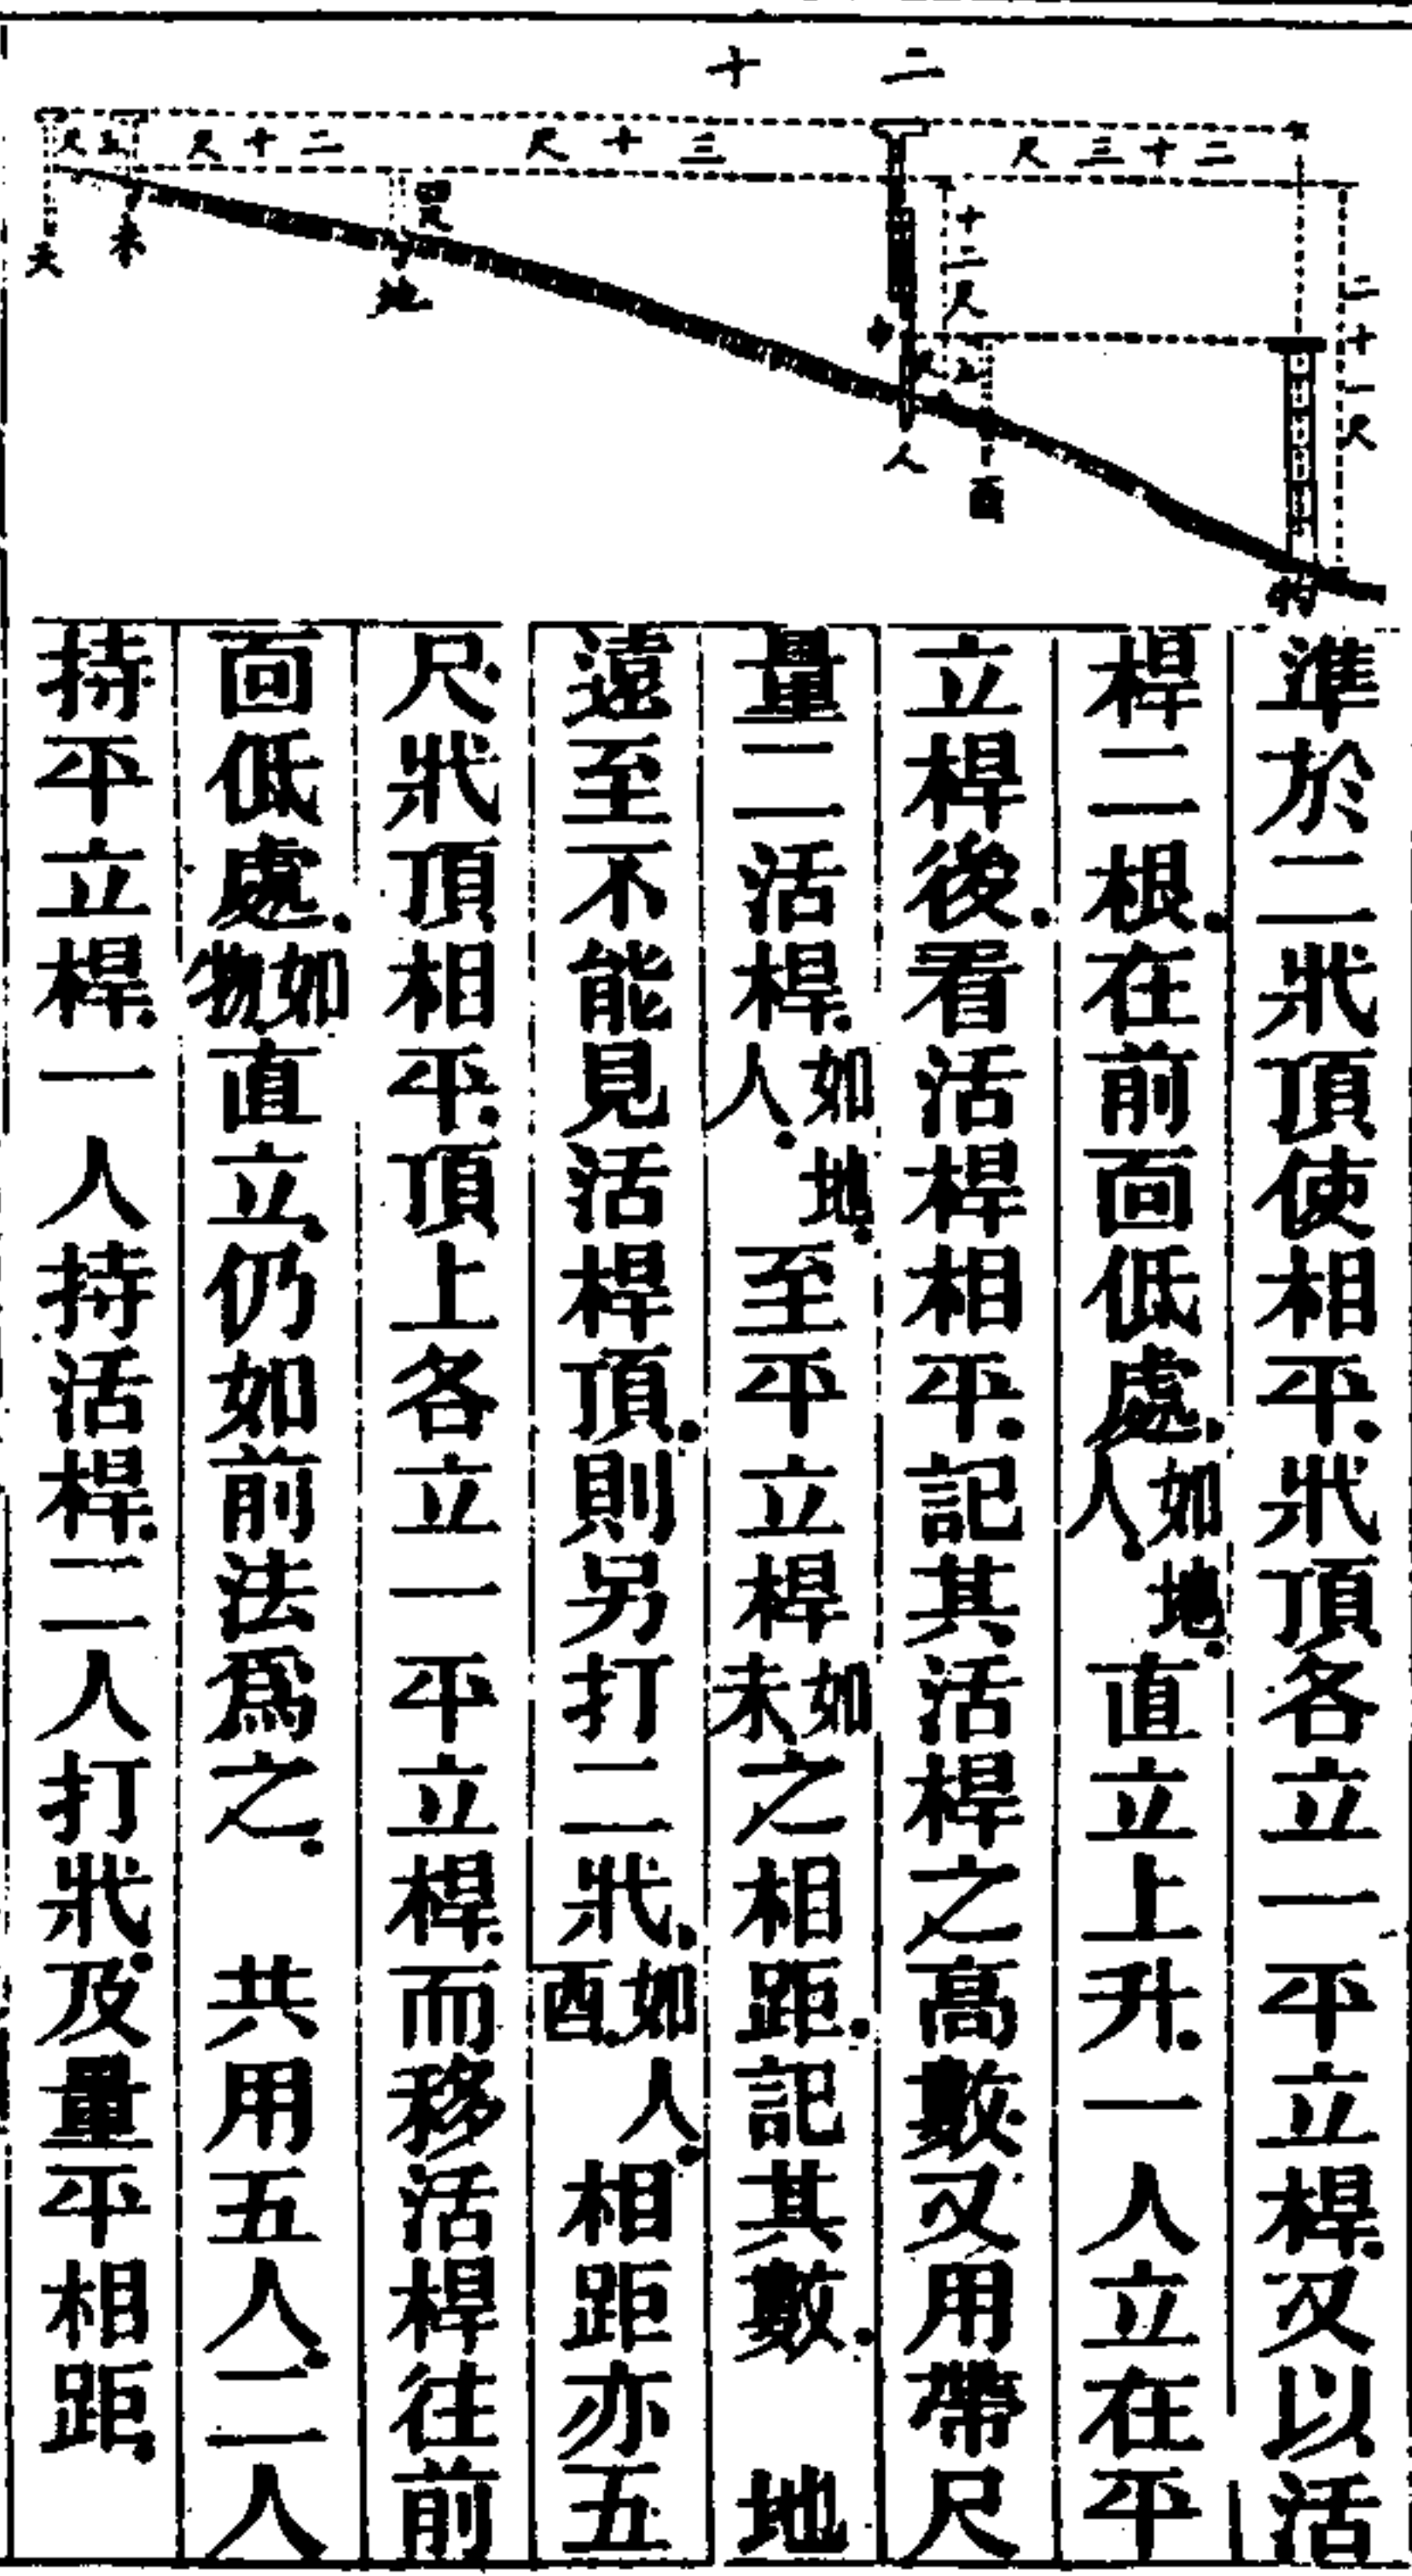 二十
二十三尺
三十尺
二十尺
五尺
四尺
十二尺
五尺
二十一尺
天
未
地
人
酉
物
準於二橛頂使相平.橛頂各立一平立桿.又以活
桿二根.在前面低處.如地.人.直立上升.一人立在平
立桿後.看活桿相平.記其活桿之高數.又用帶尺
量二活桿.如地.人.至平立桿如未之相距.記其數.　地
遠至不能見活桿頂.則另打二橛.如人.酉.相距亦五
尺.橛頂相平.頂上各立一平立桿.而移活桿往前
面低處.如物.直立.仍如前法爲之.　共用五人.二人
持平立桿.一人持活桿.二人打橛.及量平相距.